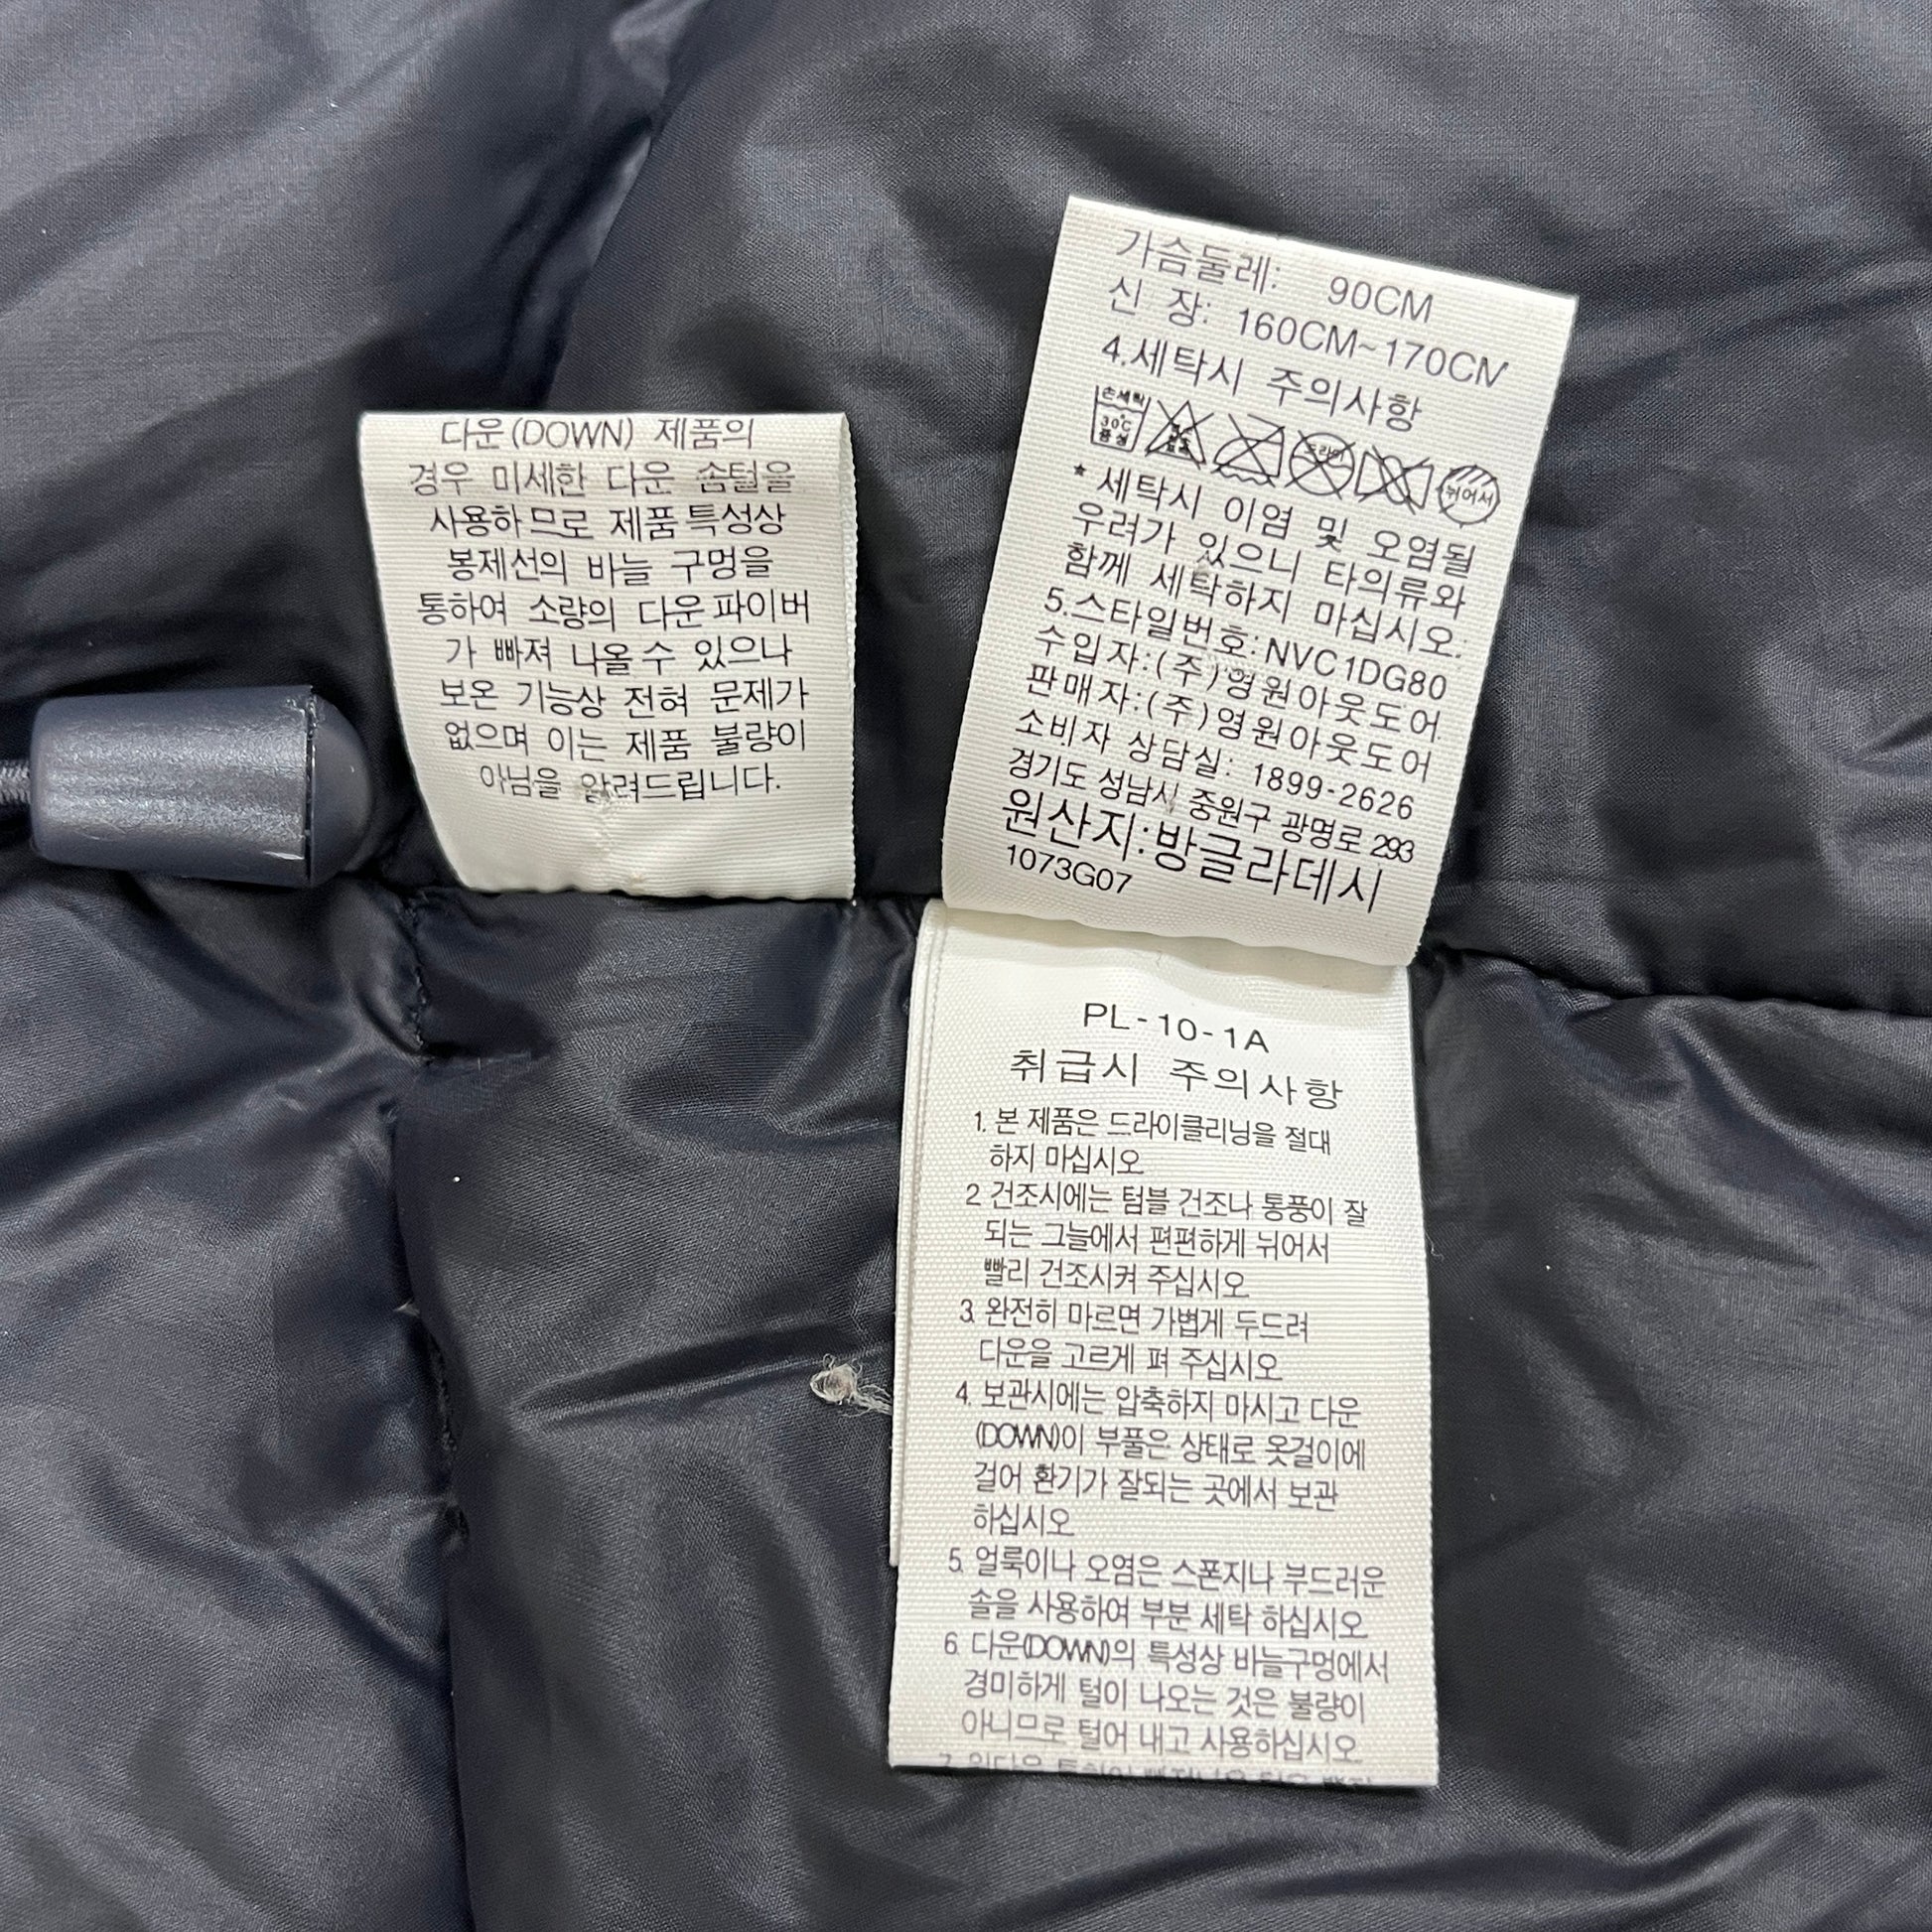 다운(DOWN) 제품의
경우 미세한 다운 솜털을
사용하므로 제품 특성상
봉제선의 바늘 구멍을
통하여 소량의 다운 파이버
가 빠져 나올 수 있으나
보온 기능상 전혀 문제가
없으며 이는 제품 불량이
아님을 알려드립니다.
가슴둘레: 90CM
신 장: 160CM~170CM
4.세탁시 주의사항
손세탁
30℃
중성
드라이
뉘어서
* 세탁시 이염 및 오염될
우려가 있으니 타의류와
함께 세탁하지 마십시오.
5.스타일번호: NVC1DG80
수입자:(주)영원아웃도어
판매자:(주)영원아웃도어
소비자 상담실: 1899-2626
경기도 성남시 중원구 광명로 293
원산지:방글라데시
1073G07
PL-10-1A
취급시 주의사항
1. 본 제품은 드라이클리닝을 절대
하지 마십시오
2. 건조시에는 텀블 건조나 통풍이 잘
되는 그늘에서 편편하게 뉘어서
빨리 건조시켜 주십시오
3. 완전히 마르면 가볍게 두드려
다운을 고르게 펴 주십시오
4. 보관시에는 압축하지 마시고 다운
(DOWN)이 부풀은 상태로 옷걸이에
걸어 환기가 잘되는 곳에서 보관
하십시오
5. 얼룩이나 오염은 스폰지나 부드러운
솔을 사용하여 부분 세탁 하십시오
6. 다운(DOWN)의 특성상 바늘구멍에서
경미하게 털이 나오는 것은 불량이
아니므로 털어 내고 사용하십시오